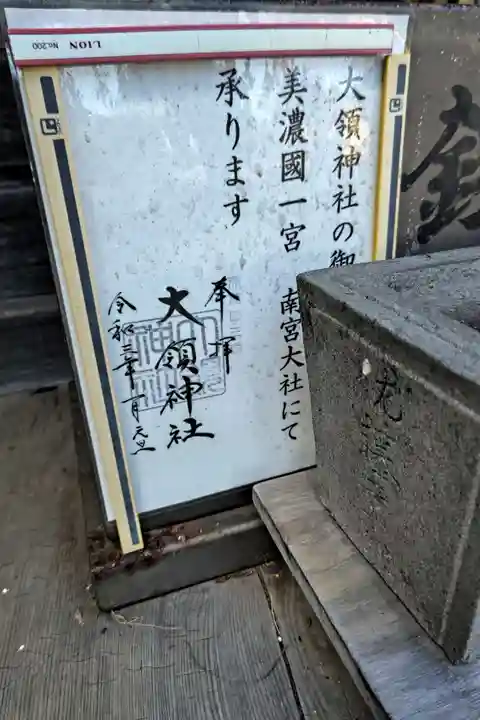 大領神社の御
美濃國一宮　南宮大社にて
承ります
奉拝
大領神社
令和三年一月元旦
LION No.200